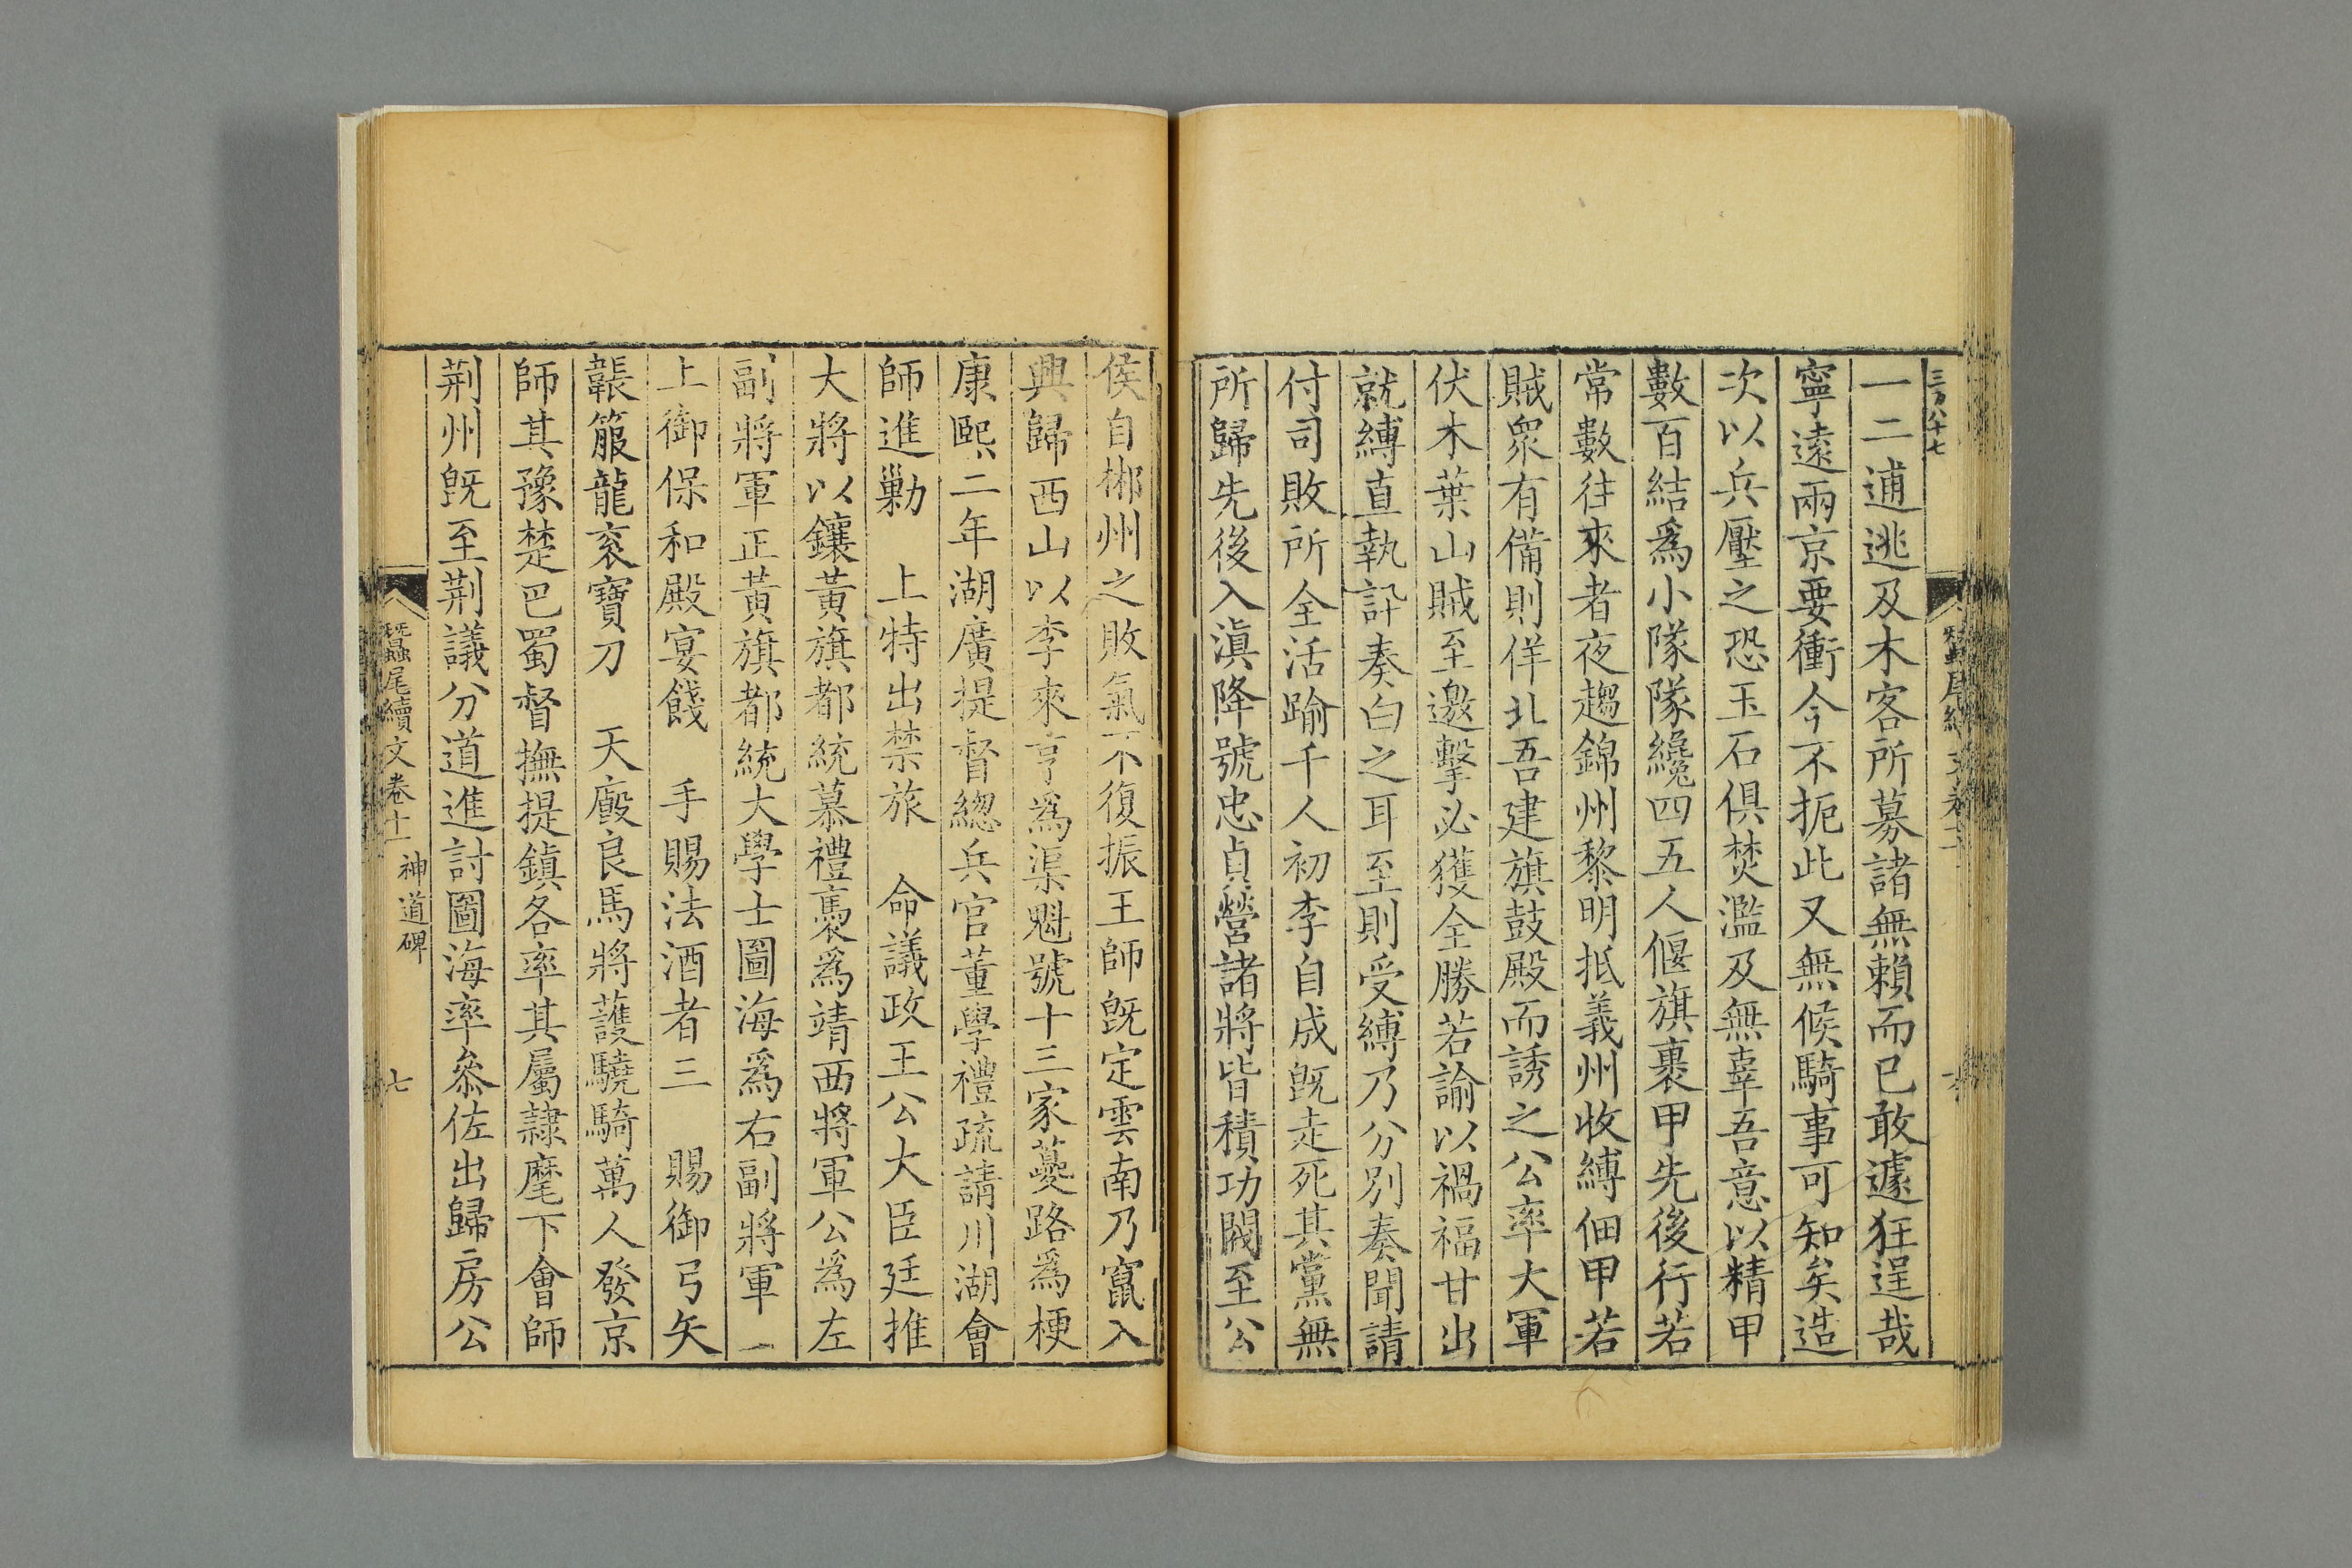 三万八十七
一二逋逃及木客所募諸無賴而已敢遽狂逞哉
寧遠兩京要衝今不扼此又無候騎事可知矣造
次以兵壓之恐玉石俱焚濫及無辜吾意以精甲
數百結爲小隊隊纔四五人偃旗裹甲先後行若
常數往來者夜趨錦州黎明抵義州收縛佃甲若
賊衆有備則佯北吾建旗鼓殿而誘之公率大軍
伏木葉山賊至邀擊必獲全勝若諭以禍福甘出
就縛直執訊奏白之耳至則受縛乃分別奏聞請
付司敗所全活踰千人初李自成旣走死其黨無
所歸先後入滇降號忠貞營諸將皆積功閥至公
侯自郴州之敗氣不復振王師旣定雲南乃竄入
興歸西山以李來亨爲渠魁號十三家蔓路爲梗
康熙二年湖廣提督緫兵官董學禮疏請川湖會
師進勦 上特出禁旅 命議政王公大臣廷推
大將以鑲黃旗都統慕禮褭爲靖西將軍公爲左
副將軍正黃旗都統大學士圖海爲右副將軍
上御保和殿宴餞 手賜法酒者三 賜御弓矢
韔箙龍衮寶刀 天廄良馬將護驍騎萬人發京
師其豫楚巴蜀督撫提鎮各率其屬隷麾下會師
荆州旣至荆議分道進討圖海率叅佐出歸房公
蠶尾續文卷十一 神道碑 七